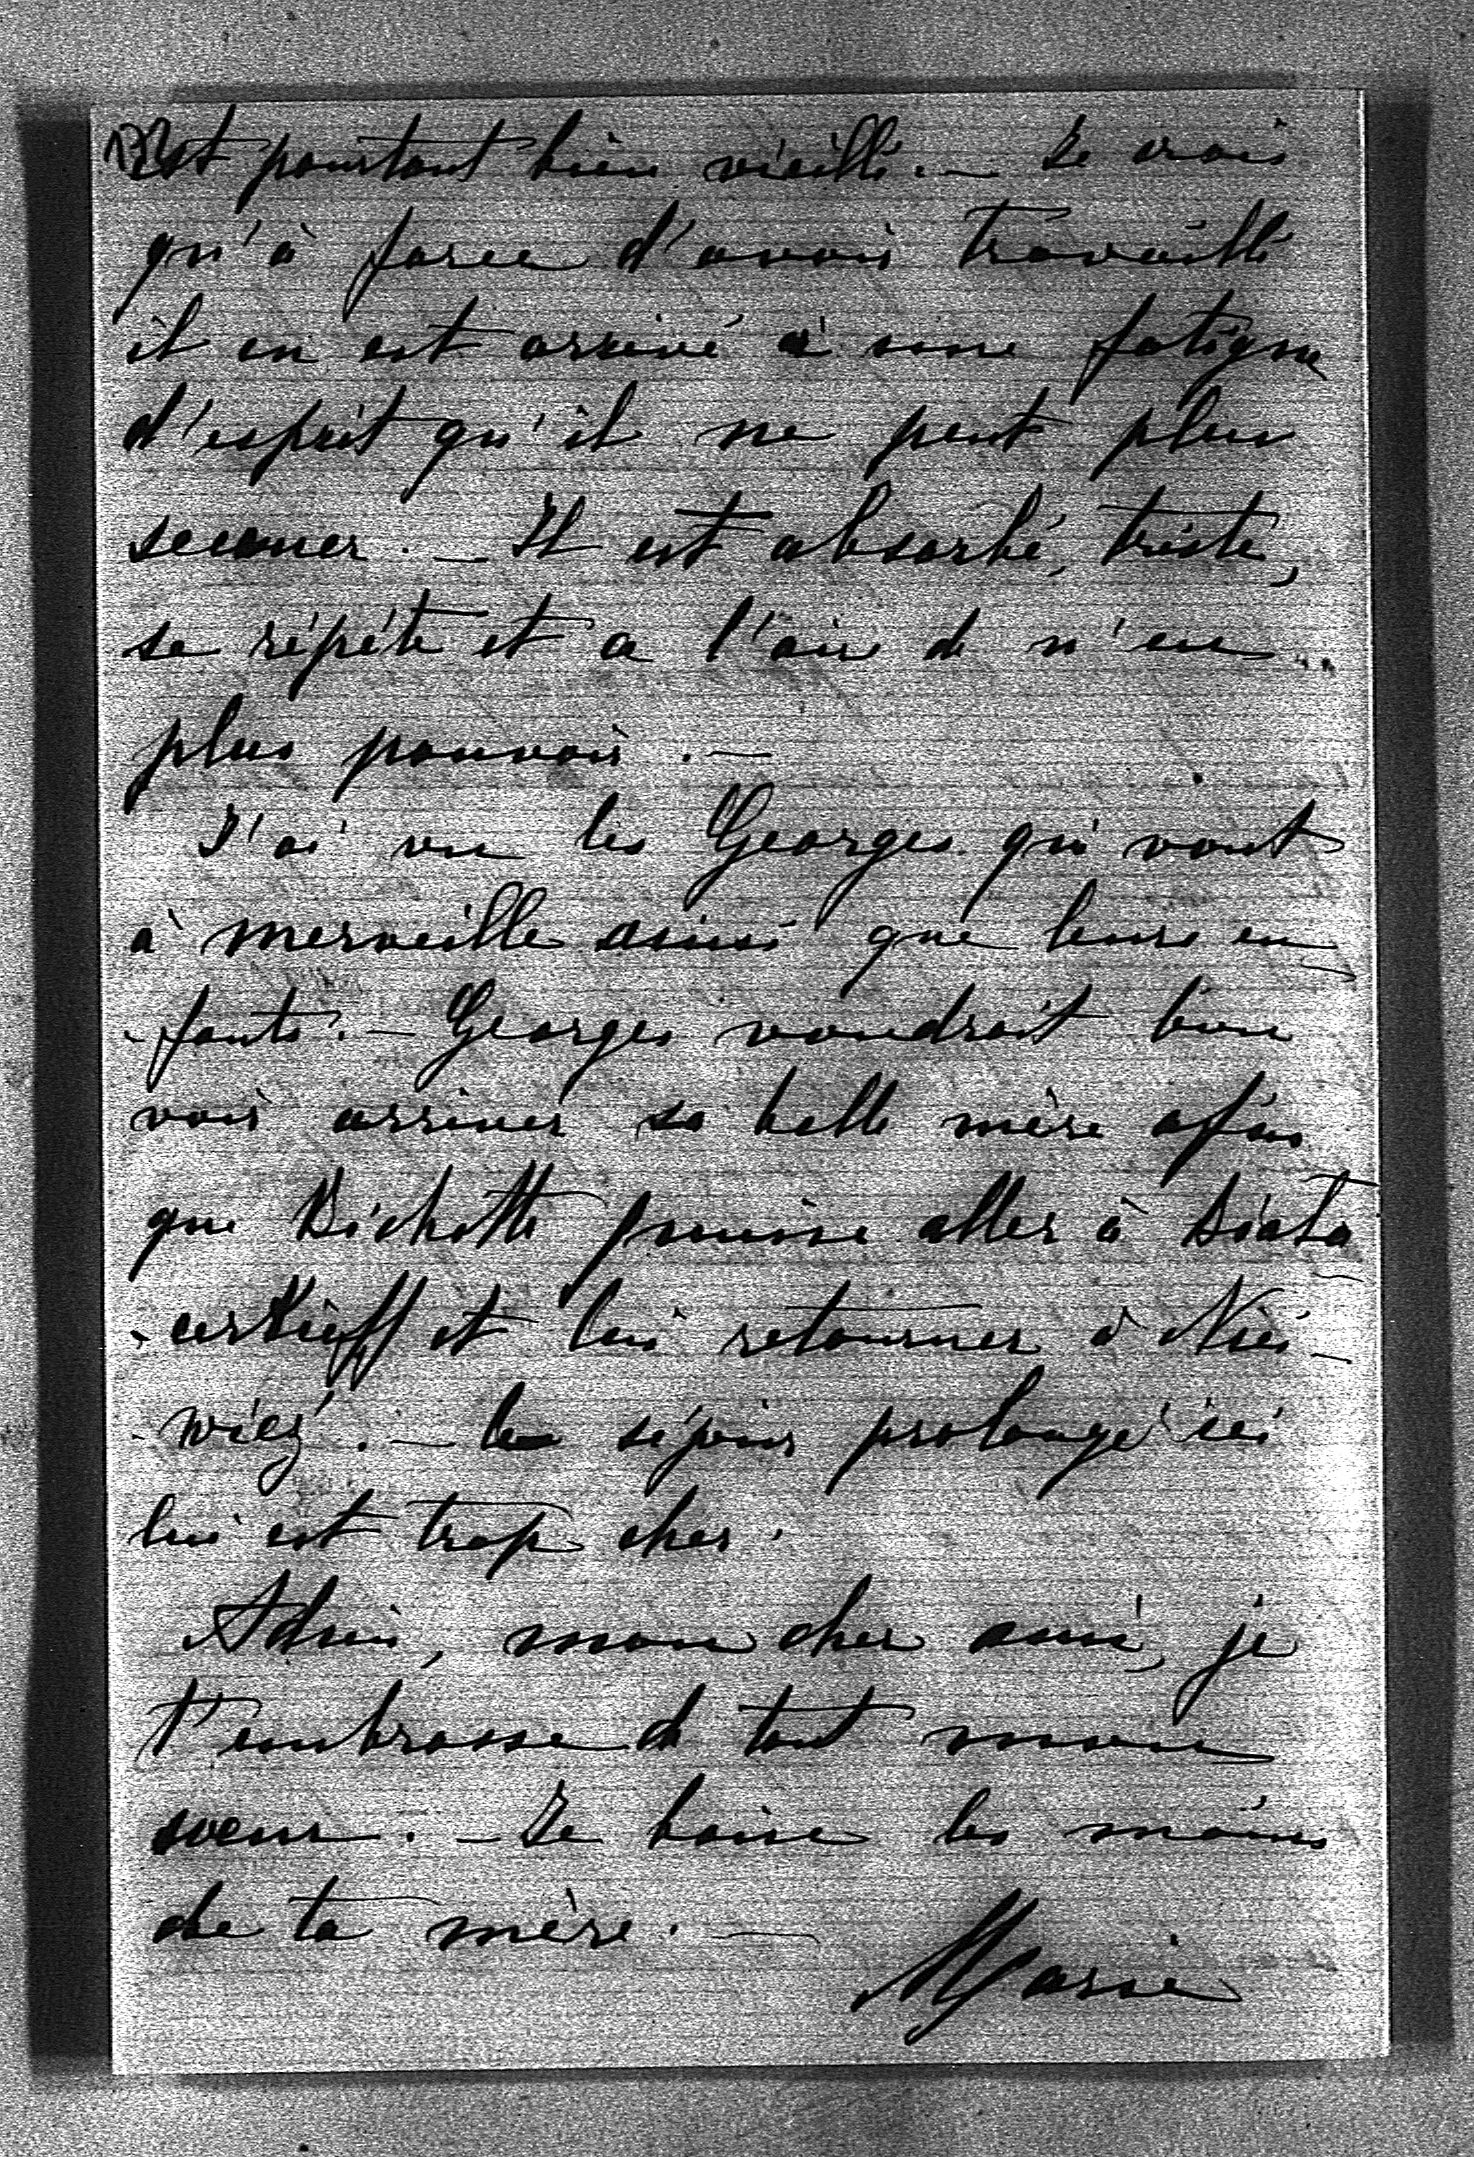 est pourtant bien vieilli. — Je crois
qu'à force d'avoir travaillé
il en est arrivé à une fatigue
d'esprit qu'il ne peut plus
secouer. — Il est absorbé, triste,
se répéte et a l'air de n'en
plus pouvoir. —
J'ai vu les Georges qui vont
à merveille ainsi que leurs en
-fants. — Georges voudrait bien
voir arriver sa belle mère afin
que Bichette puisse aller à Biała
-cerkieff et lui retourner à Nies-
-wież. — Le séjour prolongé ici
lui est trop cher.
Adieu, mon cher ami, je
t'embrasse de tout mon
coeur. — Je baise les mains
de ta mère. —
Marie